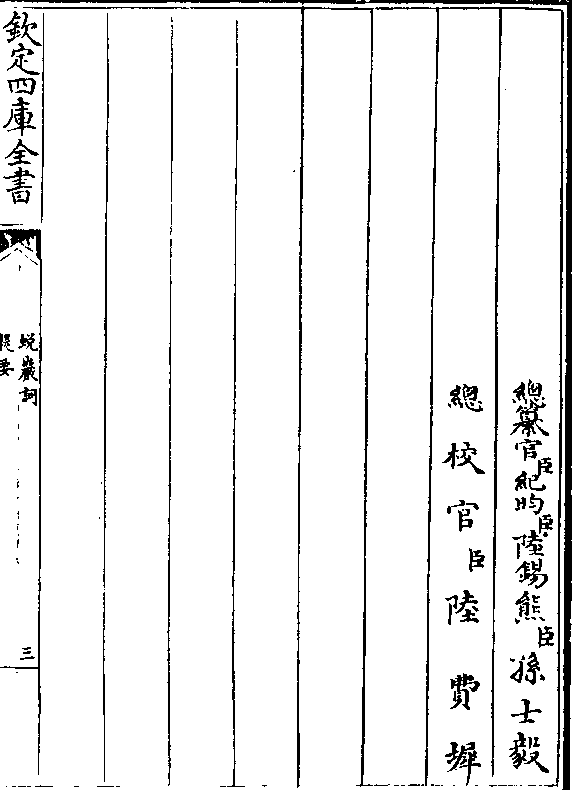 總纂官臣紀昀臣陸錫熊臣孫士毅
總校官臣陸費墀
欽定四庫全書
蛻巖詞
提要
三